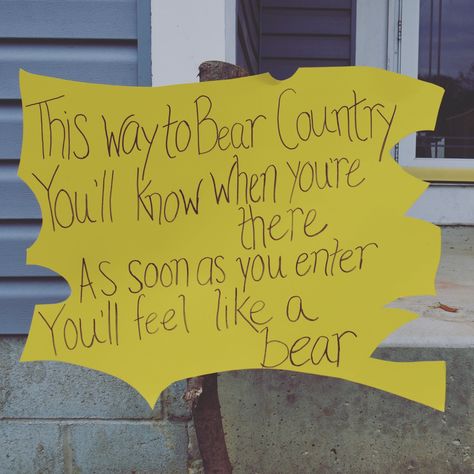 This way to Bear Country
You'll know when you're
there
As soon as you enter
You'll feel like a
bear